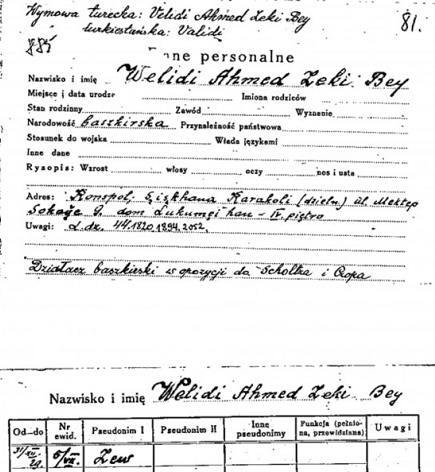 Wymowa turecka: Velidi Ahmed Zeki Bey
turkiestańska: Validi
81.
ne personalne
Nazwisko i imię Welidi Ahmed Zeki Bey
Miejsce i data urodz Imiona rodziców
Stan rodzinny Zawód Wyznanie
Narodowość baszkirska Przynależność państwowa
Stosunek do wojska Włada językami
Inne dane
Rysopis: Wzrost włosy oczy nos i usta
Adres: Konspol, Karakoli (dzieln.) ul. Mektep
Sokağe 9. dom Lukumği han - IV. piętro
Uwagi: L. dz. 44.1820, 1894, 2052,
Działacz baszkirski w opozycji do i
Nazwisko i imię Welidi Ahmed Zeki Bey
Od—do Nr ewid. Pseudonim I Pseudonim II Inne pseudonimy Funkcja (pełniona, przewidziana) Uwagi
31/XII. 29. 5/VII. Zew